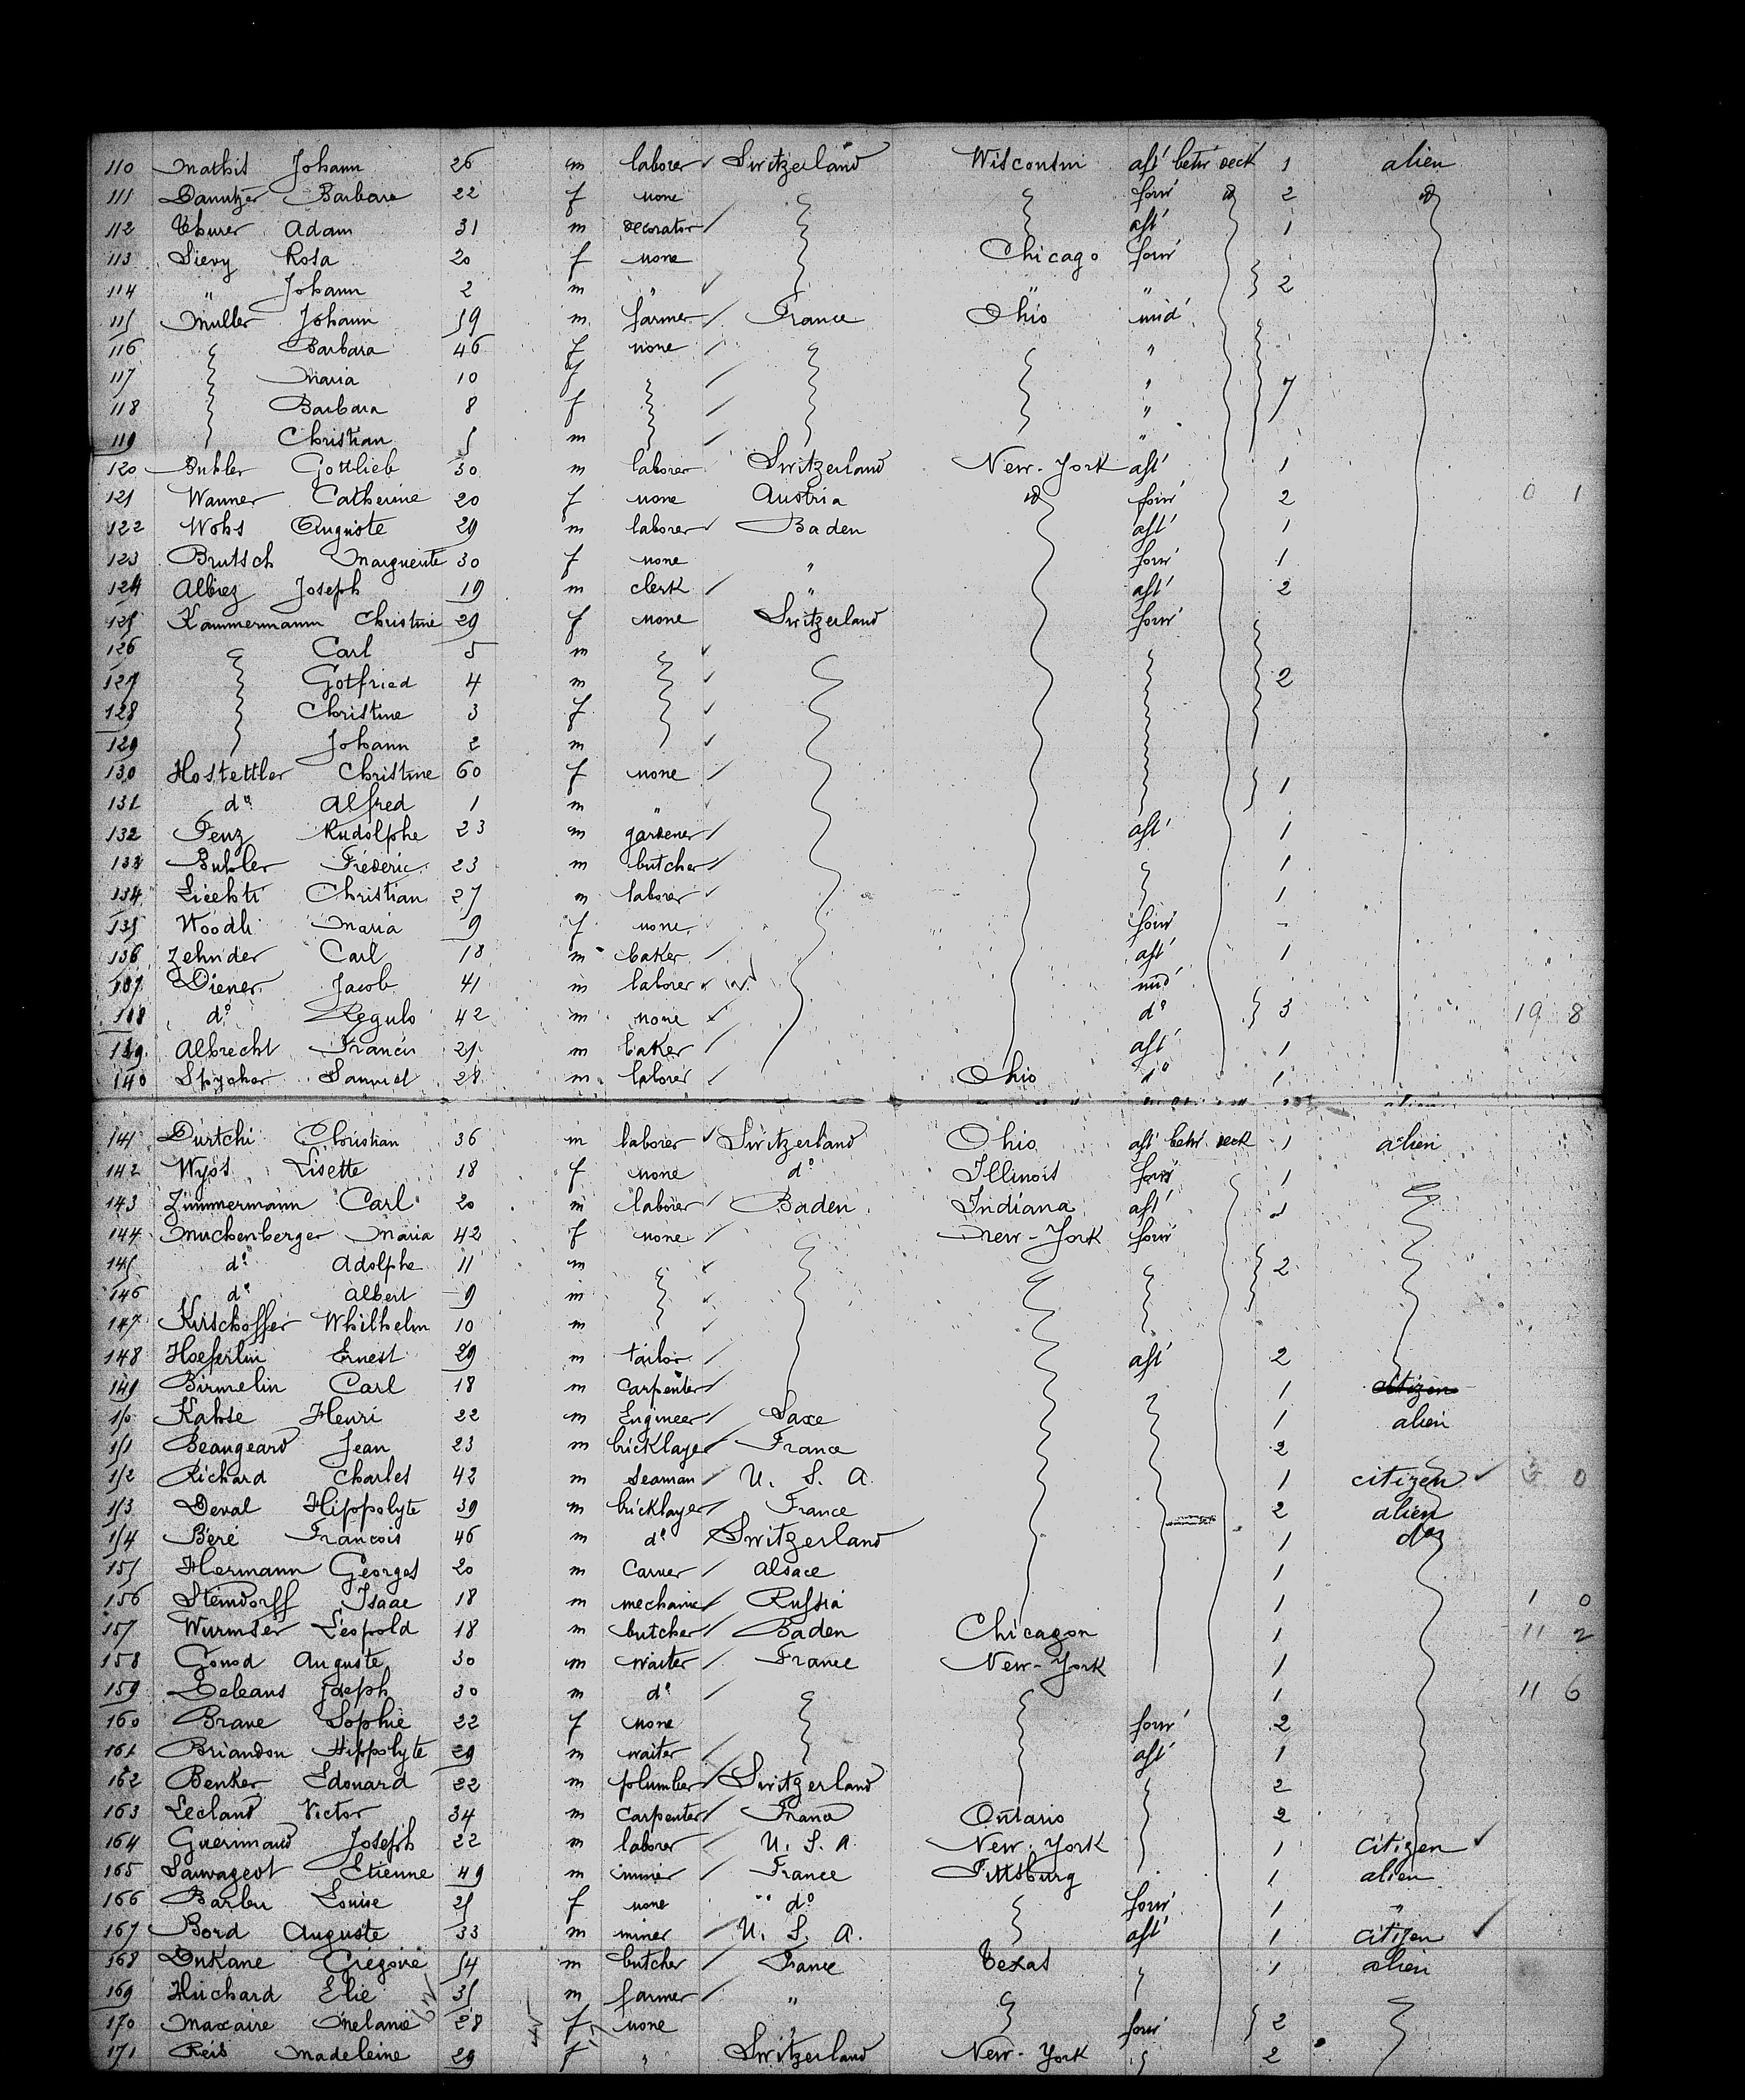 110 Mathis Johann 26 m laborer Switzerland Wisconsin aft betw deck 1 alien
111 Barbara 22 f none forw do 2 do
112 Thurer Adam 31 m decorator aft 1
113 Sievy Rosa 20 f none Chicago forw
114 " Johann 2 m " " " 2
115 Müller Johann 59 m farmer France Ohio mid
116 Barbara 46 f none "
117 Maria 10 f " 7
118 Barbara 8 f "
119 Christian 5 m "
120 Buhler Gottlieb 30 m laborer Switzerland New-York aft 1
121 Wanner Catherine 20 f none Austria do forw 2 0 1
122 Wohs Auguste 29 m laborer Baden aft 1
123 Brutsch Marguerite 30 f none " forw 1
124 Albiez Joseph 19 m clerk " aft 2
125 Kammermann Christine 29 f none Switzerland forw
126 Carl 5 m
127 Gotfried 4 m 2
128 Christine 3 f
129 Johann 2 m
130 Hostettler Christine 60 f none
131 do Alfred 1 m " 1
132 Penz Rudolphe 23 m gardener aft 1
133 Buhler Frédéric 23 m butcher 1
134 Liechti Christian 27 m laborer 1
135 Woodli Maria 9 f none forw -
136 Zehnder Carl 18 m baker aft 1
137 Diener Jacob 41 m laborer mid
138 do Regulo 42 m none do 3 19 8
139 Albrecht Francis 25 m baker aft 1
140 Spycher Samuel 28 m laborer Ohio do 1
141 Durtchi Christian 36 m laborer Switzerland Ohio aft betw deck 1 alien
142 Wyss Lisette 18 f none do Illinois forw 1
143 Zimmermann Carl 20 m laborer Baden Indiana aft 1
144 Muckenberger Maria 42 f none New-York forw
145 do Adolphe 11 m 2
146 do Albert 9 m
147 Kirschoffer Whilhelm 10 m
148 Hoeferlin Ernest 29 m tailor aft 2
149 Birmelin Carl 18 m carpenter 1 citizen
150 Kahse Henri 22 m Engineer Saxe 1 alien
151 Beaugeard Jean 23 m bricklayer France 2
152 Richard Charles 42 m seaman U. S. A. 1 citizen 0
153 Deval Hippolyte 39 m bricklayer France 2 alien
154 Béré Francois 46 m do Switzerland 1 do
155 Hermann Georges 20 m carver Alsace 1
156 Steindorff Isaac 18 m mechanic Russia 1 1 0
157 Wurmser Léopold 18 m butcher Baden Chicagon 1 11 2
158 Gonod Auguste 30 m waiter France New-York 1
159 Deleans Joseph 30 m do 1 11 6
160 Brave Sophie 22 f none forw 2
161 Briandon Hippolyte 29 m waiter aft 1
162 Benker Edouard 22 m plumber Switzerland 2
163 Lecland Victor 34 m carpenter France Ontario 2
164 Guerimaud Joseph 22 m laborer U. S. A. New-York 1 citizen
165 Sauvageot Etienne 49 m miner France Pittsburg 1 alien
166 Barbu Louise 25 f none " do forw 1 "
167 Bord Auguste 33 m miner U. S. A. aft 1 citizen
168 Dukane Grégoire 54 m butcher France Texas 1 alien
169 Huchard Elie 35 m farmer "
170 Maxaire Mélanie 28 f none " forw 2
171 Reis Madeleine 29 f " Switzerland New-York 2